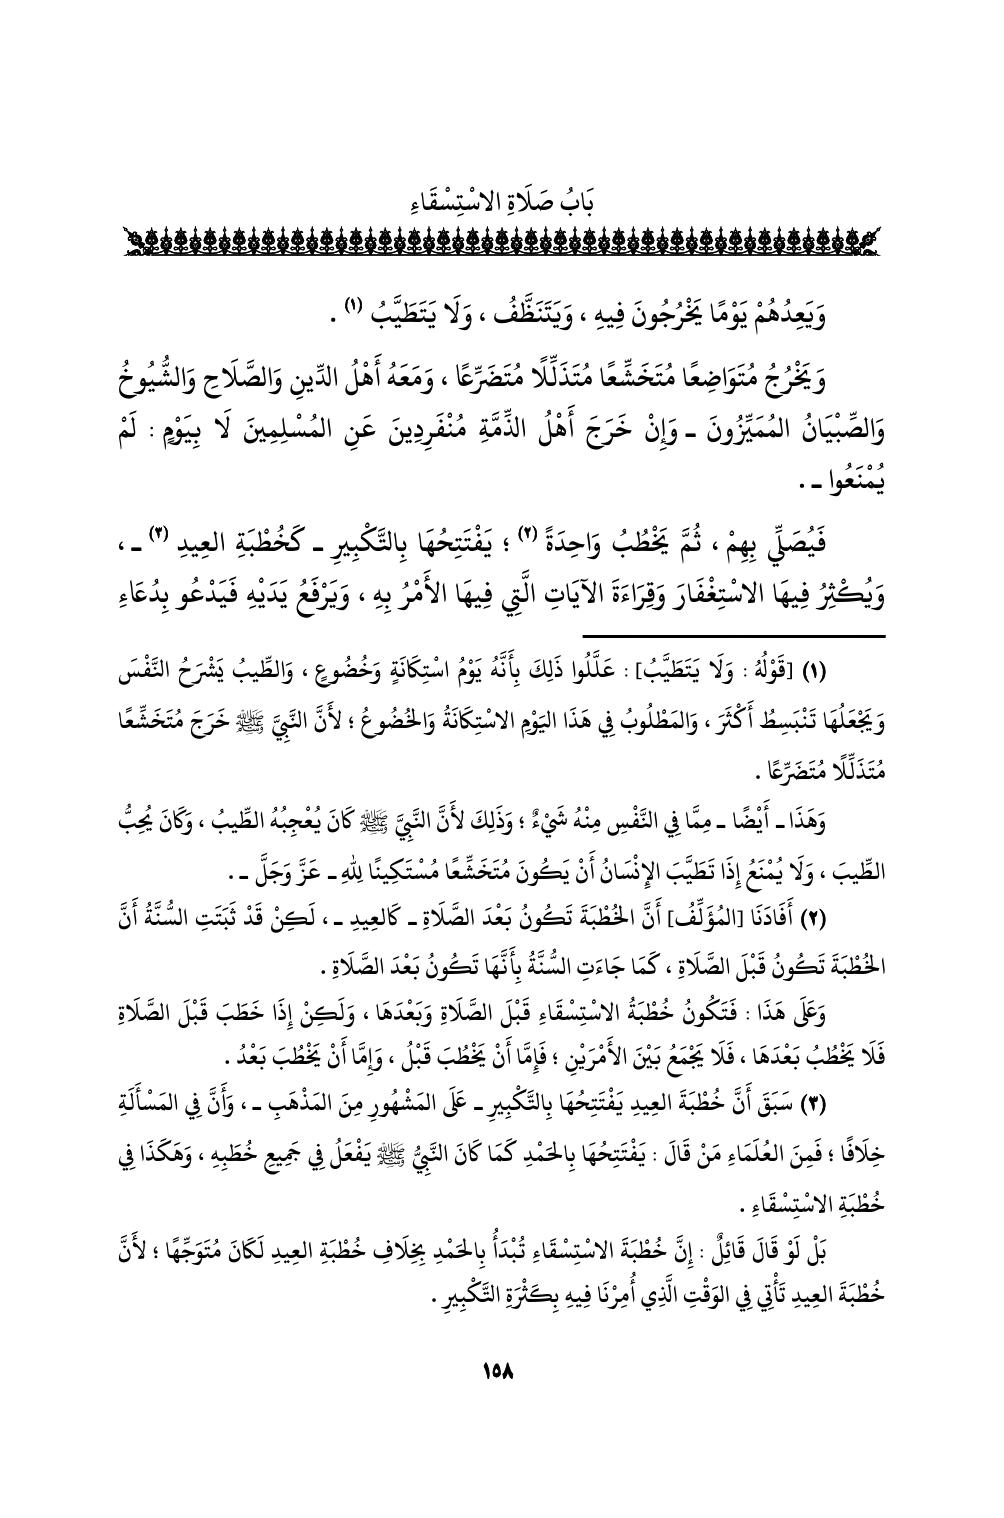 بَابُ صَلَاةِ الاسْتِسْقَاءِ
وَيَعِدُهُمْ يَوْمًا يَخْرُجُونَ فِيهِ ، وَيَتَنَظَّفُ ، وَلَا يَتَطَيَّبُ (١) .
وَيَخْرُجُ مُتَوَاضِعًا مُتَخَشِّعًا مُتَذَلِّلًا مُتَضَرِّعًا ، وَمَعَهُ أَهْلُ الدِّينِ وَالصَّلَاحِ وَالشُّيُوخُ
وَالصِّبْيَانُ المُمَيِّزُونَ ـ وَإِنْ خَرَجَ أَهْلُ الذِّمَّةِ مُنْفَرِدِينَ عَنِ المُسْلِمِينَ لَا بِيَوْمٍ : لَمْ
يُمْنَعُوا ـ .
فَيُصَلِّي بِهِمْ ، ثُمَّ يَخْطُبُ وَاحِدَةً (٢) ؛ يَفْتَتِحُهَا بِالتَّكْبِيرِ ـ كَخُطْبَةِ العِيدِ (٣) ـ ،
وَيُكْثِرُ فِيهَا الاسْتِغْفَارَ وَقِرَاءَةَ الآيَاتِ الَّتِي فِيهَا الأَمْرُ بِهِ ، وَيَرْفَعُ يَدَيْهِ فَيَدْعُو بِدُعَاءِ
(١) [قَوْلُهُ : وَلَا يَتَطَيَّبُ] : عَلَّلُوا ذَلِكَ بِأَنَّهُ يَوْمُ اسْتِكَانَةٍ وَخُضُوعٍ ، وَالطِّيبُ يَشْرَحُ النَّفْسَ
وَيَجْعَلُهَا تَنْبَسِطُ أَكْثَرَ ، وَالمَطْلُوبُ فِي هَذَا اليَوْمِ الاسْتِكَانَةُ وَالخُضُوعُ ؛ لأَنَّ النَّبِيَّ ﷺ خَرَجَ مُتَخَشِّعًا
مُتَذَلِّلًا مُتَضَرِّعًا .
وَهَذَا ـ أَيْضًا ـ مِمَّا فِي النَّفْسِ مِنْهُ شَيْءٌ ؛ وَذَلِكَ لأَنَّ النَّبِيَّ ﷺ كَانَ يُعْجِبُهُ الطِّيبُ ، وَكَانَ يُحِبُّ
الطِّيبَ ، وَلَا يُمْنَعُ إِذَا تَطَيَّبَ الإِنْسَانُ أَنْ يَكُونَ مُتَخَشِّعًا مُسْتَكِينًا لِلهِ ـ عَزَّ وَجَلَّ ـ .
(٢) أَفَادَنَا [المُؤَلِّفُ] أَنَّ الخُطْبَةَ تَكُونُ بَعْدَ الصَّلَاةِ ـ كَالعِيدِ ـ ، لَكِنْ قَدْ ثَبَتَتِ السُّنَّةُ أَنَّ
الخُطْبَةَ تَكُونُ قَبْلَ الصَّلَاةِ ، كَمَا جَاءَتِ السُّنَّةُ بِأَنَّهَا تَكُونُ بَعْدَ الصَّلَاةِ .
وَعَلَى هَذَا : فَتَكُونُ خُطْبَةُ الاسْتِسْقَاءِ قَبْلَ الصَّلَاةِ وَبَعْدَهَا ، وَلَكِنْ إِذَا خَطَبَ قَبْلَ الصَّلَاةِ
فَلَا يَخْطُبُ بَعْدَهَا ، فَلَا يَجْمَعُ بَيْنَ الأَمْرَيْنِ ؛ فَإِمَّا أَنْ يَخْطُبَ قَبْلُ ، وَإِمَّا أَنْ يَخْطُبَ بَعْدُ .
(٣) سَبَقَ أَنَّ خُطْبَةَ العِيدِ يَفْتَتِحُهَا بِالتَّكْبِيرِ ـ عَلَى المَشْهُورِ مِنَ المَذْهَبِ ـ ، وَأَنَّ فِي المَسْأَلَةِ
خِلَافًا ؛ فَمِنَ العُلَمَاءِ مَنْ قَالَ : يَفْتَتِحُهَا بِالحَمْدِ كَمَا كَانَ النَّبِيُّ ﷺ يَفْعَلُ فِي جَمِيعِ خُطَبِهِ ، وَهَكَذَا فِي
خُطْبَةِ الاسْتِسْقَاءِ .
بَلْ لَوْ قَالَ قَائِلٌ : إِنَّ خُطْبَةَ الاسْتِسْقَاءِ تُبْدَأُ بِالحَمْدِ بِخِلَافِ خُطْبَةِ العِيدِ لَكَانَ مُتَوَجِّهًا ؛ لأَنَّ
خُطْبَةَ العِيدِ تَأْتِي فِي الوَقْتِ الَّذِي أُمِرْنَا فِيهِ بِكَثْرَةِ التَّكْبِيرِ .
١٥٨